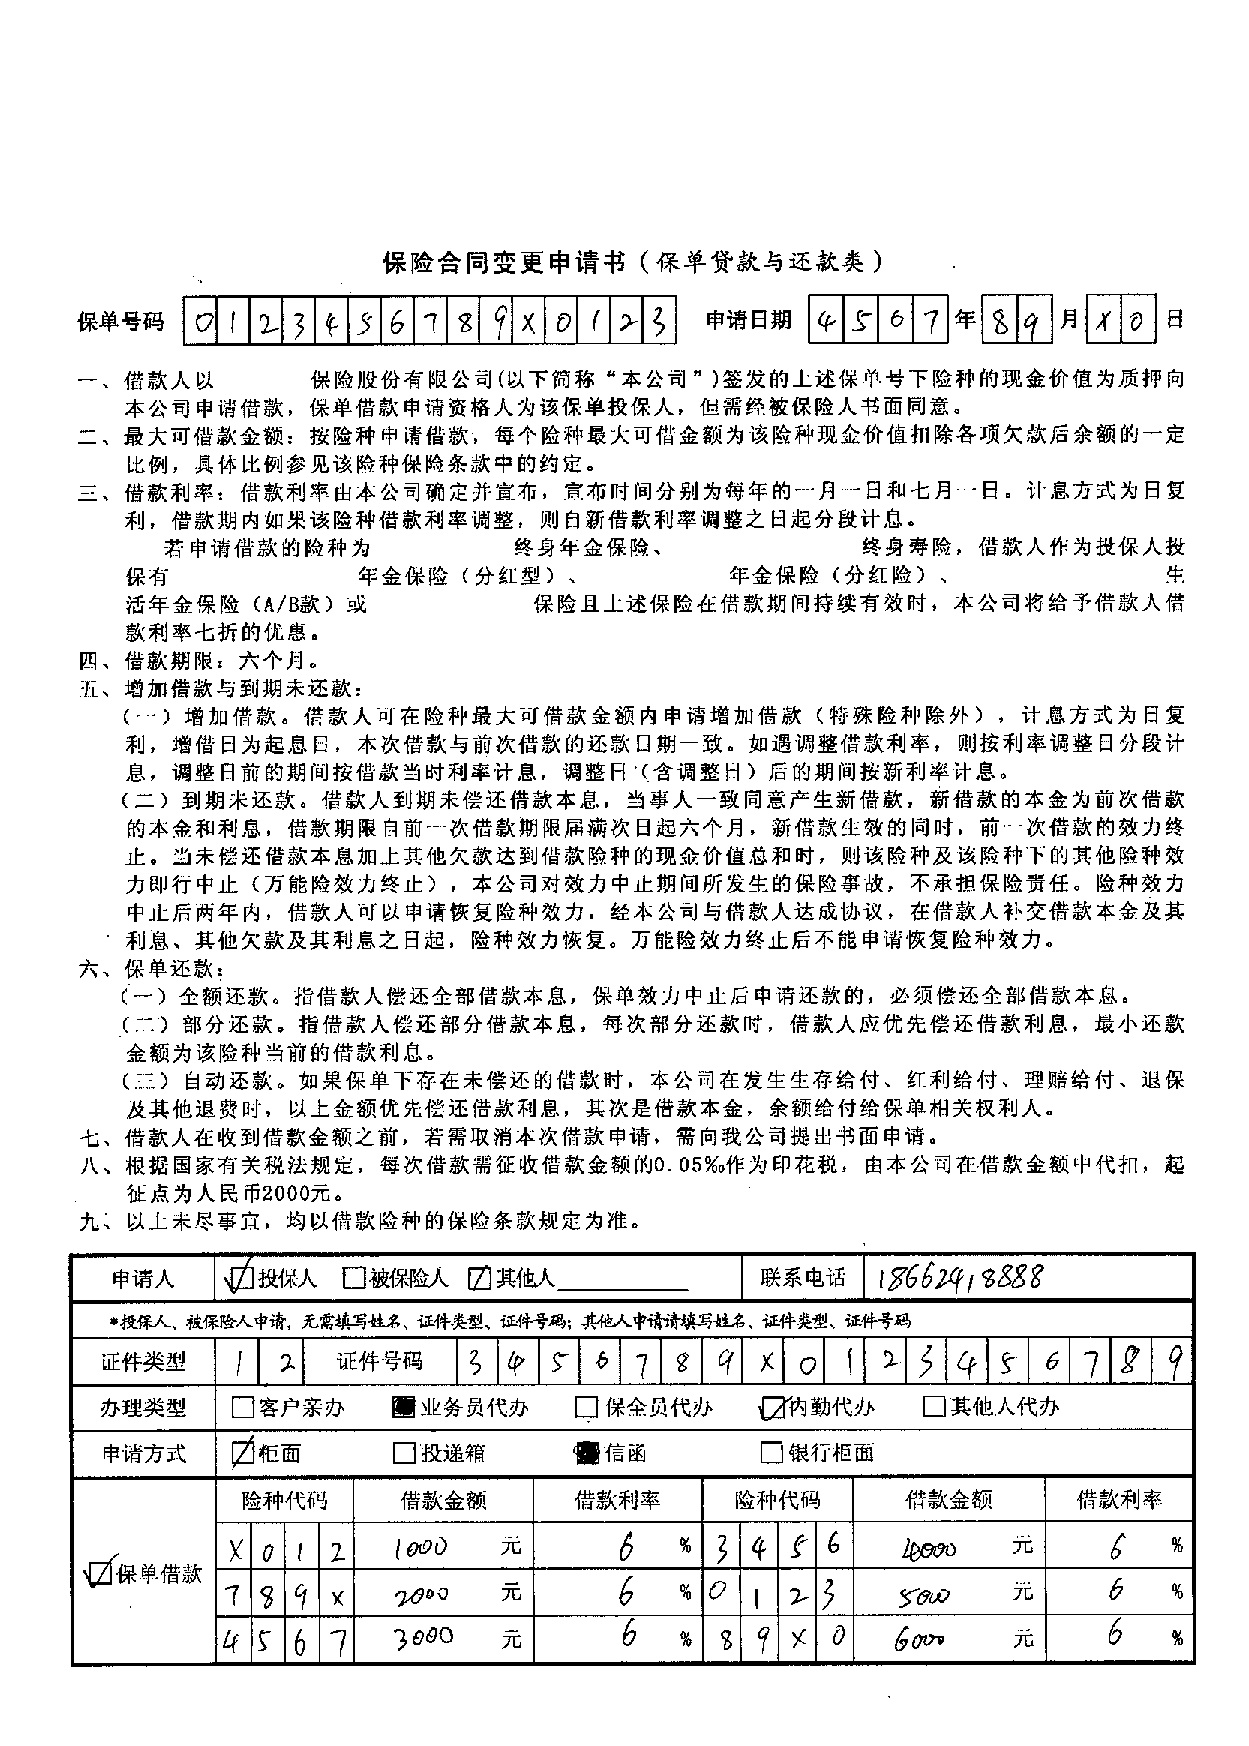 保险合同变更申请书（保单贷款与还款类）
保单号码 0123456789X0123 申请日期 4567年89月X0日
一、借款人以 保险股份有限公司(以下简称“本公司”)签发的上述保单号下险种的现金价值为质押向
本公司申请借款，保单借款申请资格人为该保单投保人，但需经被保险人书面同意。
二、最大可借款金额：按险种申请借款，每个险种最大可借金额为该险种现金价值扣除各项欠款后余额的一定
比例，具体比例参见该险种保险条款中的约定。
三、借款利率：借款利率由本公司确定并宣布，宣布时间分别为每年的一月一日和七月一日。计息方式为日复
利，借款期内如果该险种借款利率调整，则自新借款利率调整之日起分段计息。
若申请借款的险种为 终身年金保险、 终身寿险，借款人作为投保人投
保有 年金保险（分红型）、 年金保险（分红险）、 生
活年金保险（A/B款）或 保险且上述保险在借款期间持续有效时，本公司将给予借款人借
款利率七折的优惠。
四、借款期限：六个月。
五、增加借款与到期未还款：
（一）增加借款。借款人可在险种最大可借款金额内申请增加借款（特殊险种除外），计息方式为日复
利，增借日为起息日，本次借款与前次借款的还款日期一致。如遇调整借款利率，则按利率调整日分段计
息，调整日前的期间按借款当时利率计息，调整日（含调整日）后的期间按新利率计息。
（二）到期未还款。借款人到期未偿还借款本息，当事人一致同意产生新借款，新借款的本金为前次借款
的本金和利息，借款期限自前一次借款期限届满次日起六个月，新借款生效的同时，前一次借款的效力终
止。当未偿还借款本息加上其他欠款达到借款险种的现金价值总和时，则该险种及该险种下的其他险种效
力即行中止（万能险效力终止），本公司对效力中止期间所发生的保险事故，不承担保险责任。险种效力
中止后两年内，借款人可以申请恢复险种效力，经本公司与借款人达成协议，在借款人补交借款本金及其
利息、其他欠款及其利息之日起，险种效力恢复。万能险效力终止后不能申请恢复险种效力。
六、保单还款：
（一）全额还款。指借款人偿还全部借款本息，保单效力中止后申请还款的，必须偿还全部借款本息。
（二）部分还款。指借款人偿还部分借款本息，每次部分还款时，借款人应优先偿还借款利息，最小还款
金额为该险种当前的借款利息。
（三）自动还款。如果保单下存在未偿还的借款时，本公司在发生生存给付、红利给付、理赔给付、退保
及其他退费时，以上金额优先偿还借款利息，其次是借款本金，余额给付给保单相关权利人。
七、借款人在收到借款金额之前，若需取消本次借款申请，需向我公司提出书面申请。
八、根据国家有关税法规定，每次借款需征收借款金额的0.05‰作为印花税，由本公司在借款金额中代扣，起
征点为人民币2000元。
九、以上未尽事宜，均以借款险种的保险条款规定为准。
申请人 ☑投保人 □被保险人 ☑其他人 联系电话 18662418888
*投保人、被保险人申请，无需填写姓名、证件类型、证件号码；其他人申请请填写姓名、证件类型、证件号码
证件类型 12 证件号码 3456789X0123456789
办理类型 □客户亲办 ■业务员代办 □保全员代办 ☑内勤代办 □其他人代办
申请方式 ☑柜面 □投递箱 ■信函 □银行柜面
险种代码 借款金额 借款利率 险种代码 借款金额 借款利率
☑保单借款
X012 1000 元 6 % 3456 4000 元 6 %
789X 2000 元 6 % 0123 5000 元 6 %
4567 3000 元 6 % 89X0 6000 元 6 %